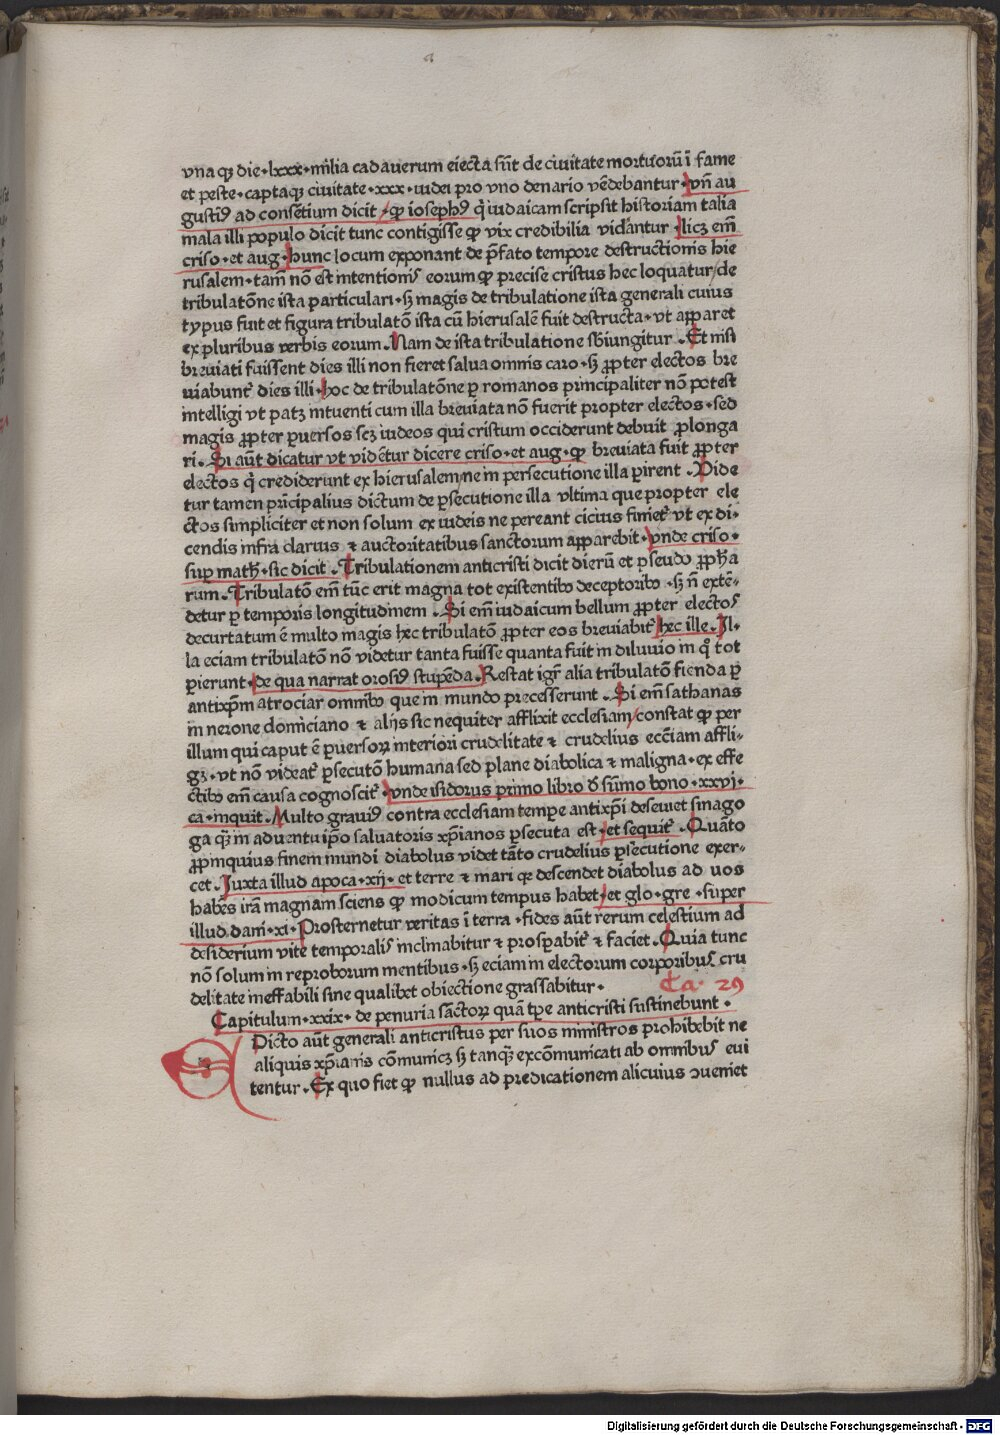 vna qꝫ die·lxxx·mīlia cadauerum eiecta sūt de ciuitate mortuorū ī fame
et peste·captaqꝫ ciuitate·xxx·iudei pro vno denario vēdebantur·vn̄ au
gustin⁹ ad consētium dicit·ꝙ ioseph⁹ q̇ iudaicam scripsit historiam talia
mala illi populo dicit tunc contigisse ꝙ vix credibilia vidātur·licꝫ em̄
criso·et aug·hunc locum exponant de p̄fato tempore destructionis hie
rusalem·tam̄ nō est intentionis eorum ꝙ precise cristus hec loquatur/de
tribulatōne ista particulari·sꝫ magis de tribulatione ista generali cuius
typus fuit et figura tribulatō ista cū hierusalē fuit destructa·vt apparet
ex pluribus verbis eorum·Nam de ista tribulatione sbiungitur·Et nisi
breuiati fuissent dies illi non fieret salua omnis caro·sꝫ ꝓpter electos bre
uiabunt᷑ dies illi·hoc de tribulatōne ꝑ romanos principaliter nō potest
intelligi vt patꝫ intuenti cum illa breuiata nō fuerit propter electos·sed
magis ꝓpter ꝑuersos scꝫ iudeos qui cristum occiderunt debuit ꝓlonga
ri·Si aūt dicatur vt vidētur dicere criso·et aug·ꝙ breuiata fuit ꝓpter
electos q̇ crediderunt ex hierusalem/ne in persecutione illa ꝑirent·Vide
tur tamen prīcipalius dictum de ꝑsecutione illa vltima que propter ele
ctos simpliciter et non solum ex iudeis ne pereant cicius finiet᷑ vt ex di·
cendis infra clarius ⁊ auctoritatibus sanctorum apparebit·vnde criso·
suꝑ math·sic dicit·Tribulationem anticristi dicit dierū et pseudo ꝓpha
rum·Tribulatō em̄ tūc erit magna tot existentibꝰ deceptoribꝰ·sꝫ n̄ extē-
detur ꝑ temporis longitudinem·Si em̄ iudaicum bellum ꝓpter electos
decurtatum ē multo magis hec tribulatō ꝓpter eos breuiabit᷑ hec ille·Il·
la eciam tribulatō nō videtur tanta fuisse quanta fuit in diluuio in q̊ tot
ꝑierunt·de qua narrat orosi⁹ stupēda·Restat igr̄ alia tribulatō fienda ꝑ
antixp̄m atrociar omnibꝰ que in mundo precesserunt·Si em̄ sathanas
in nerone domiciano ⁊ alijs sic nequiter afflixit ecclesiam/constat ꝙ per
illum qui caput ē ꝑuersoꝝ interiori crudelitate ⁊ crudelius ecc̄iam affli-
gꝫ·vt nō videat᷑ ꝑsecutō humana sed plane diabolica ⁊ maligna·ex effe
ctibꝰ em̄ causa cognoscit᷑·vnde isidorus primo libro đ sūmo bono·xxvi·
ca·inquit·Multo graui⁹ contra ecclesiam tempe antixp̄i deseuiet sinago
ga q̄ꝫ in aduentu ip̄o saluatoris xp̄ianos ꝑsecuta est·et sequit᷑·Quāto
ꝓpinquius finem mundi diabolus videt tāto crudelius ꝑsecutione exer-
cet·Iuxta illud apoca·xij·et terre ⁊ mari qꝛ descendet diabolus ad uos
habēs irā magnam sciens ꝙ modicum tempus habet·et glo·gre·super
illud dani·xi·Prosternetur veritas ī terra·fides aūt rerum celestium ad
desiderium vite temporalis inclinabitur ⁊ prosꝑabit᷑ ⁊ faciet·Quia tunc
nō solum in reproborum mentibus·sꝫ eciam in electorum corporibus cru
delitate ineffabili sine qualibet obiectione grassabitur·
Ca· 29
Capitulum·xxix·de penuria sāctoꝝ quā tꝑe anticristi sustinebunt·
Dicto aūt generali anticristus per suos ministros prohibebit ne
aliquis xp̄ianis cōmunicꝫ sꝫ tanq̄ꝫ excōmunicati ab omnibus eui
tentur·Ex quo fiet ꝙ nullus ad predicationem alicuius ꝯueniet
Digitalisierung gefördert durch die Deutsche Forschungsgemeinschaft - DFG